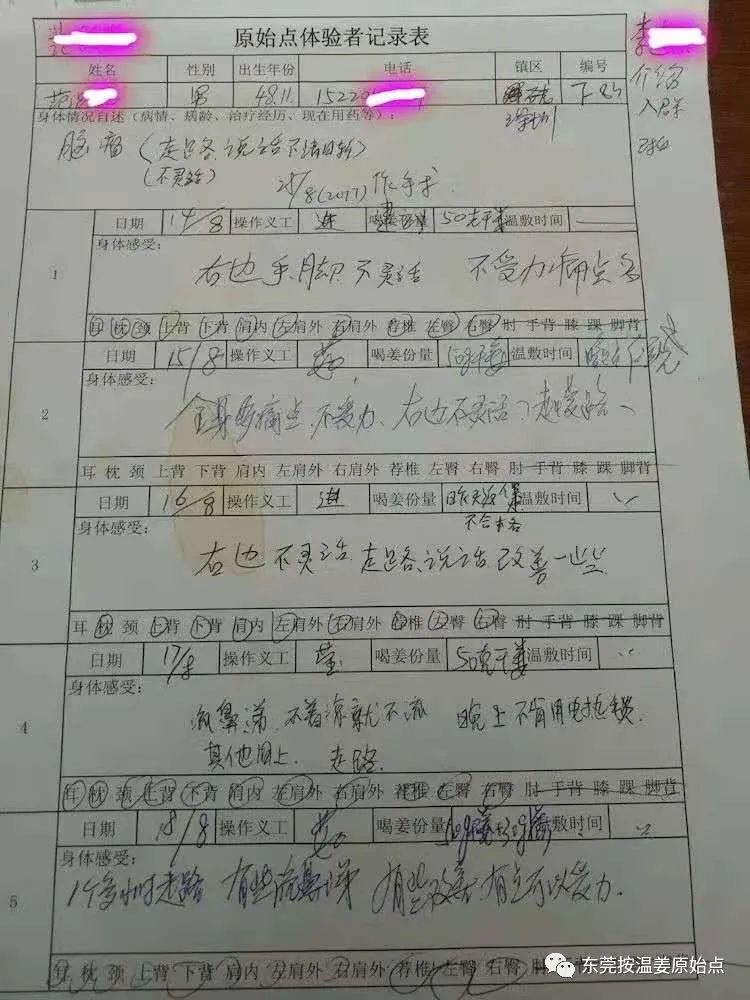 原始点体验者记录表
姓名 性别 出生年份 电话 镇区 编号
男 48.11. 15220
介绍
入群
身体情况自述(病情、病龄、治疗经历、现在用药等):
脑瘤(走路、说话不清晰)
(不灵活) 25/8(2017)作手术.
1
日期 14/8 操作义工 进 喝姜份量 50克干姜 温敷时间
身体感受:
右边手、脚不灵活 不受力 痛点多
耳 枕 颈 上背 下背 肩内 左肩外 右肩外 荐椎 左臀 右臀 肘 手背 膝 踝 脚背
2
日期 15/8 操作义工 喝姜份量 温敷时间
身体感受:
全身多痛点、不受力、右边不灵活
耳 枕 颈 上背 下背 肩内 左肩外 右肩外 荐椎 左臀 右臀 肘 手背 膝 踝 脚背
3
日期 16/8 操作义工 进 喝姜份量 昨天 温敷时间
身体感受:
右边不灵活 走路、说话改善一些
耳 枕 颈 上背 下背 肩内 左肩外 右肩外 荐椎 左臀 右臀 肘 手背 膝 踝 脚背
4
日期 17/8 操作义工 喝姜份量 50克干姜 温敷时间
身体感受:
流鼻涕、不着凉就不流 晚上不肯用电热毯.
其他同上. 走路.
耳 枕 颈 上背 下背 肩内 左肩外 右肩外 荐椎 左臀 右臀 肘 手背 膝 踝 脚背
5
日期 18/8 操作义工 喝姜份量 温敷时间
身体感受:
1个多小时走路 有些流鼻涕 有些改善、有点可以受力.
耳 枕 颈 上背 下背 肩内 左肩外 右肩外 荐椎 左臀 右臀
东莞按温姜原始点